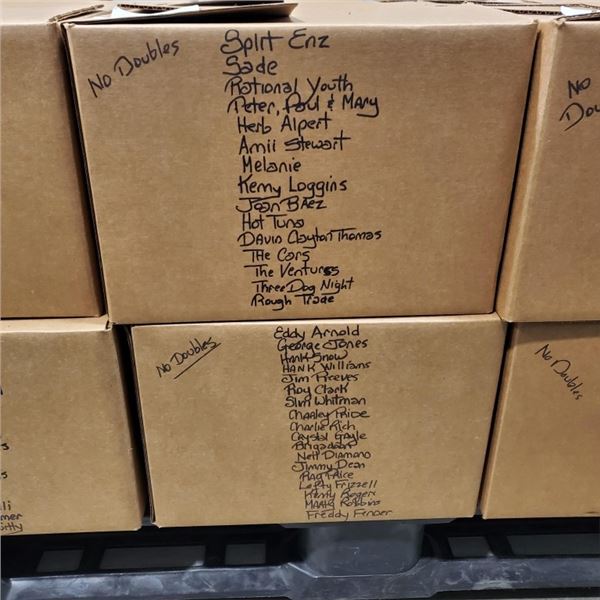 No Doubles
Split Enz
Sade
Rational Youth
Peter, Paul & Mary
Herb Alpert
Amii Stewart
Melanie
Kenny Loggins
Joan Baez
Hot Tuna
David Clayton Thomas
The Cars
The Ventures
Three Dog Night
Rough Trade
No
Dou
No Doubles
Eddy Arnold
George Jones
Hank Snow
Hank Williams
Jim Reeves
Roy Clark
Slim Whitman
Charley Pride
Charlie Rich
Crystal Gayle
Brigadoon
Neil Diamond
Jimmy Dean
Ray Price
Lefty Frizzell
Kenny Rogers
Marty Robbins
Freddy Fender
No Doubles
s
s
li
mer